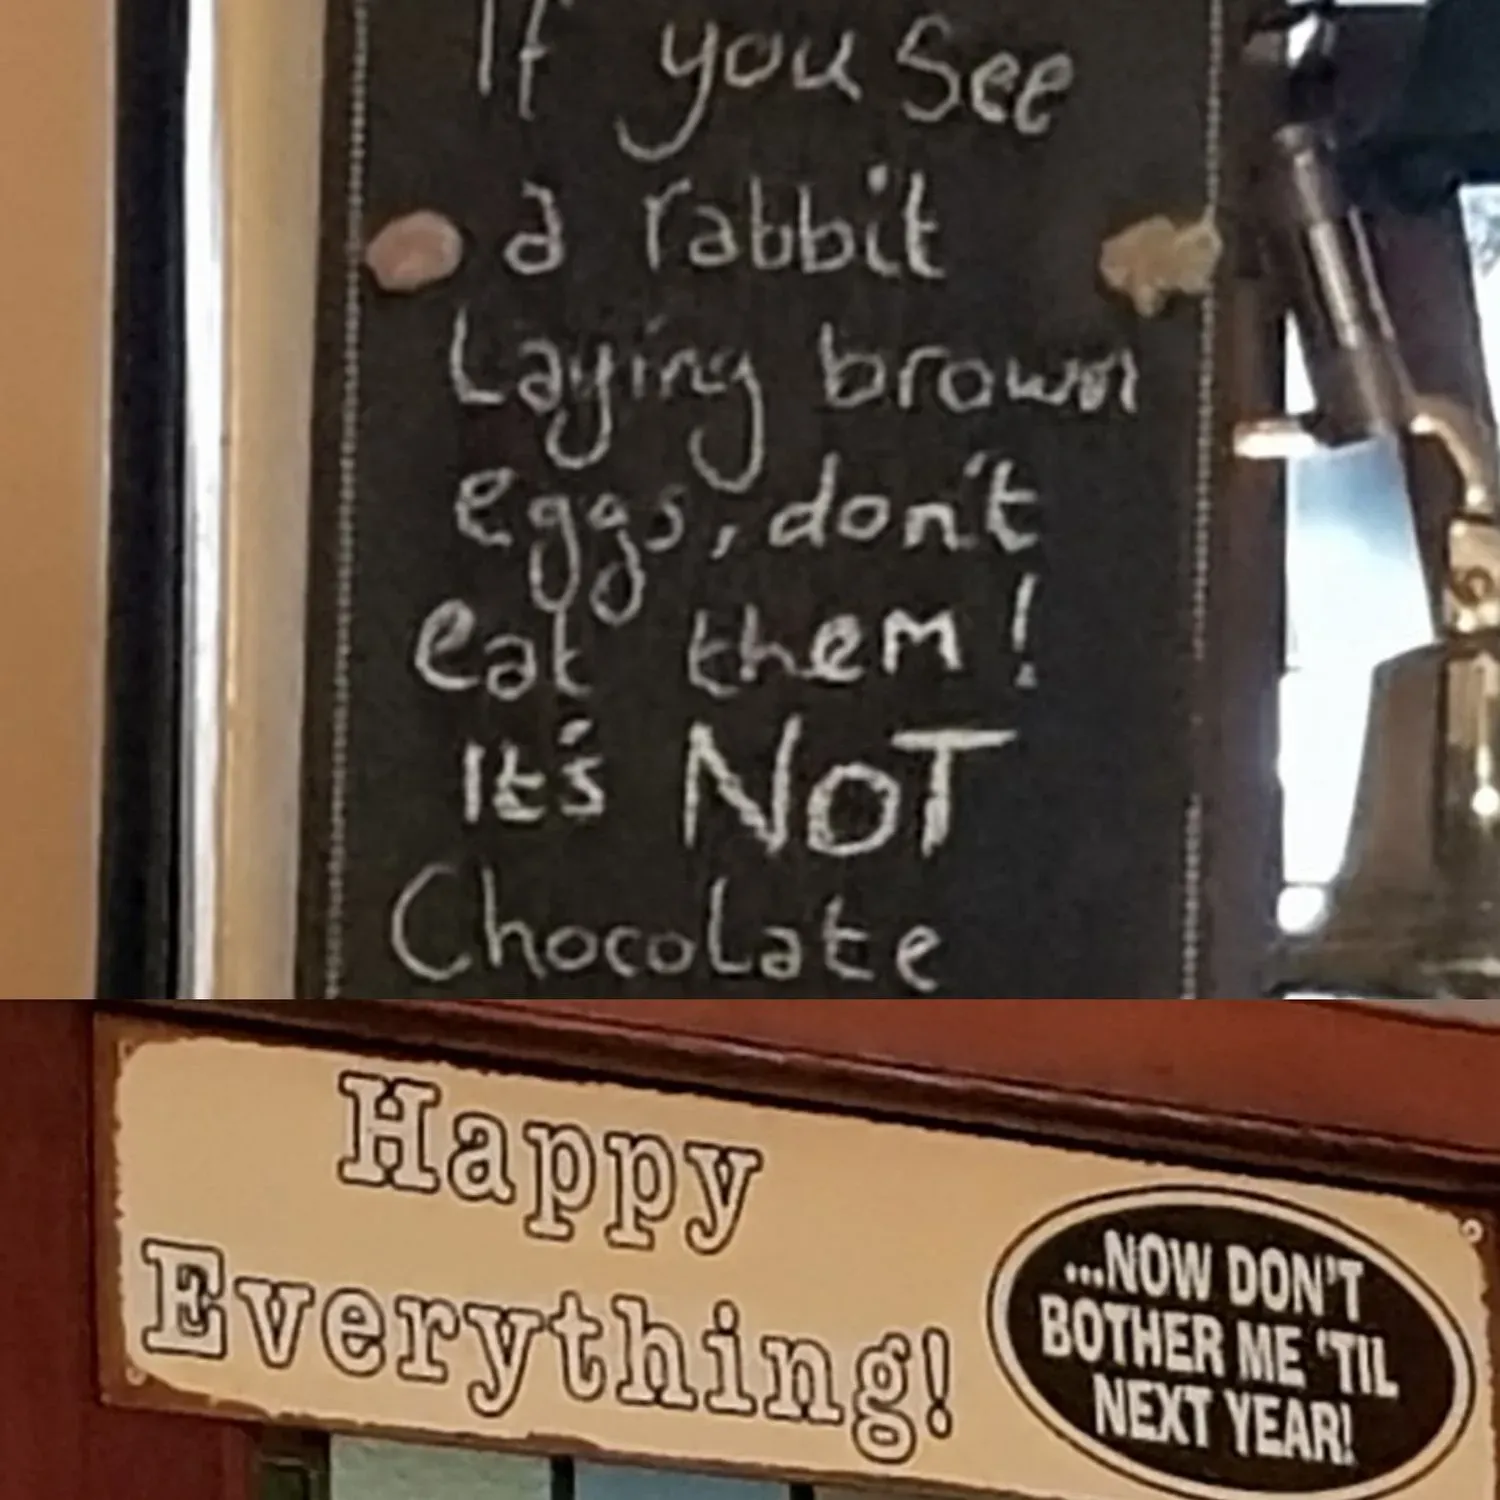 If you see
a rabbit
Laying brown
eggs, don't
eat them!
It's NOT
Chocolate
Happy
Everything!
...NOW DON'T
BOTHER ME 'TIL
NEXT YEAR!